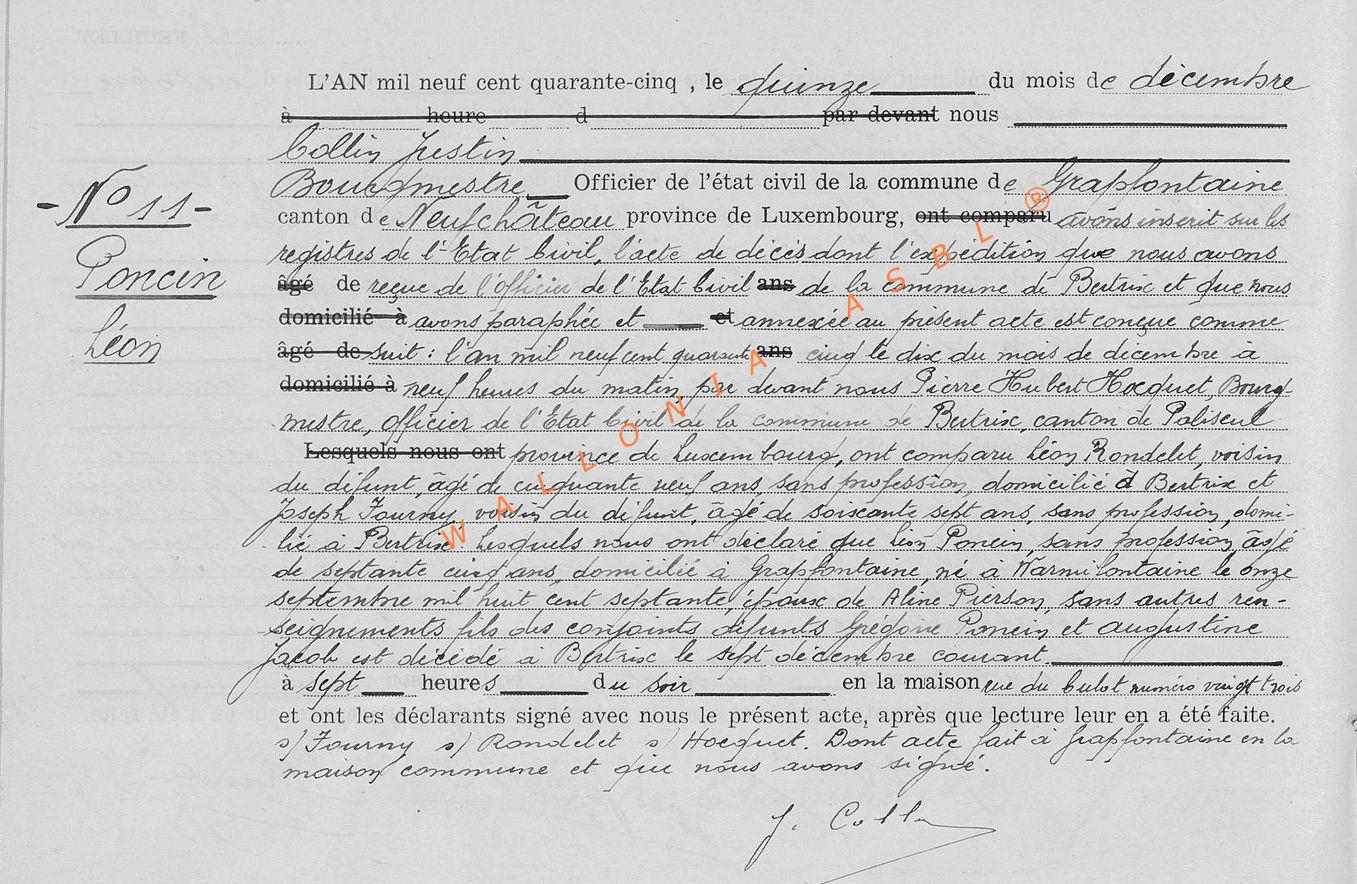 L'AN mil neuf cent quarante-cinq, le quinze du mois de décembre
à heure d par devant nous
Collin Justin
Bourgmestre Officier de l'état civil de la commune de Grapfontaine
- N° 11 -
canton de Neufchâteau province de Luxembourg, ont comparu avons inscrit sur les
registres de l'Etat Civil, l'acte de décès dont l'expédition que nous avons
Poncin
âgé de reçue de l'officier de l'Etat Civil ans de la commune de Bertrix et que nous
domicilié à avons paraphée et et annexée au présent acte est conçue comme
Léon
âgé de suit : l'an mil neuf cent quarante ans cinq le dix du mois de décembre à
domicilié à neuf heures du matin, par devant nous Pierre Hubert Hocquet, Bourg-
mestre, officier de l'Etat Civil de la commune de Bertrix, canton de Paliseul
Lesquels nous ont province de Luxembourg, ont comparu Léon Rondelet, voisin
du défunt, âgé de cinquante neuf ans, sans profession, domicilié à Bertrix et
Joseph Fourny, voisin du défunt, âgé de soixante sept ans, sans profession, domi-
-lié à Bertrix. Lesquels nous ont déclaré que Léon Poncin, sans profession, âgé
de septante cinq ans, domicilié à Grapfontaine, né à Warmifontaine le onze
septembre mil huit cent septante, époux de Aline Pierson, sans autres ren-
-seignements fils des conjoints défunts Grégoire Poncin et Augustine
Jacob est décédé à Bertrix le sept décembre courant
à sept heures du soir en la maison rue du Culot numéro vingt trois
et ont les déclarants signé avec nous le présent acte, après que lecture leur en a été faite.
s) Fourny s) Rondelet s) Hocquet. Dont acte fait à Grapfontaine en la
maison commune et que nous avons signé.
J. Collin
WALLONIA ASBL ®